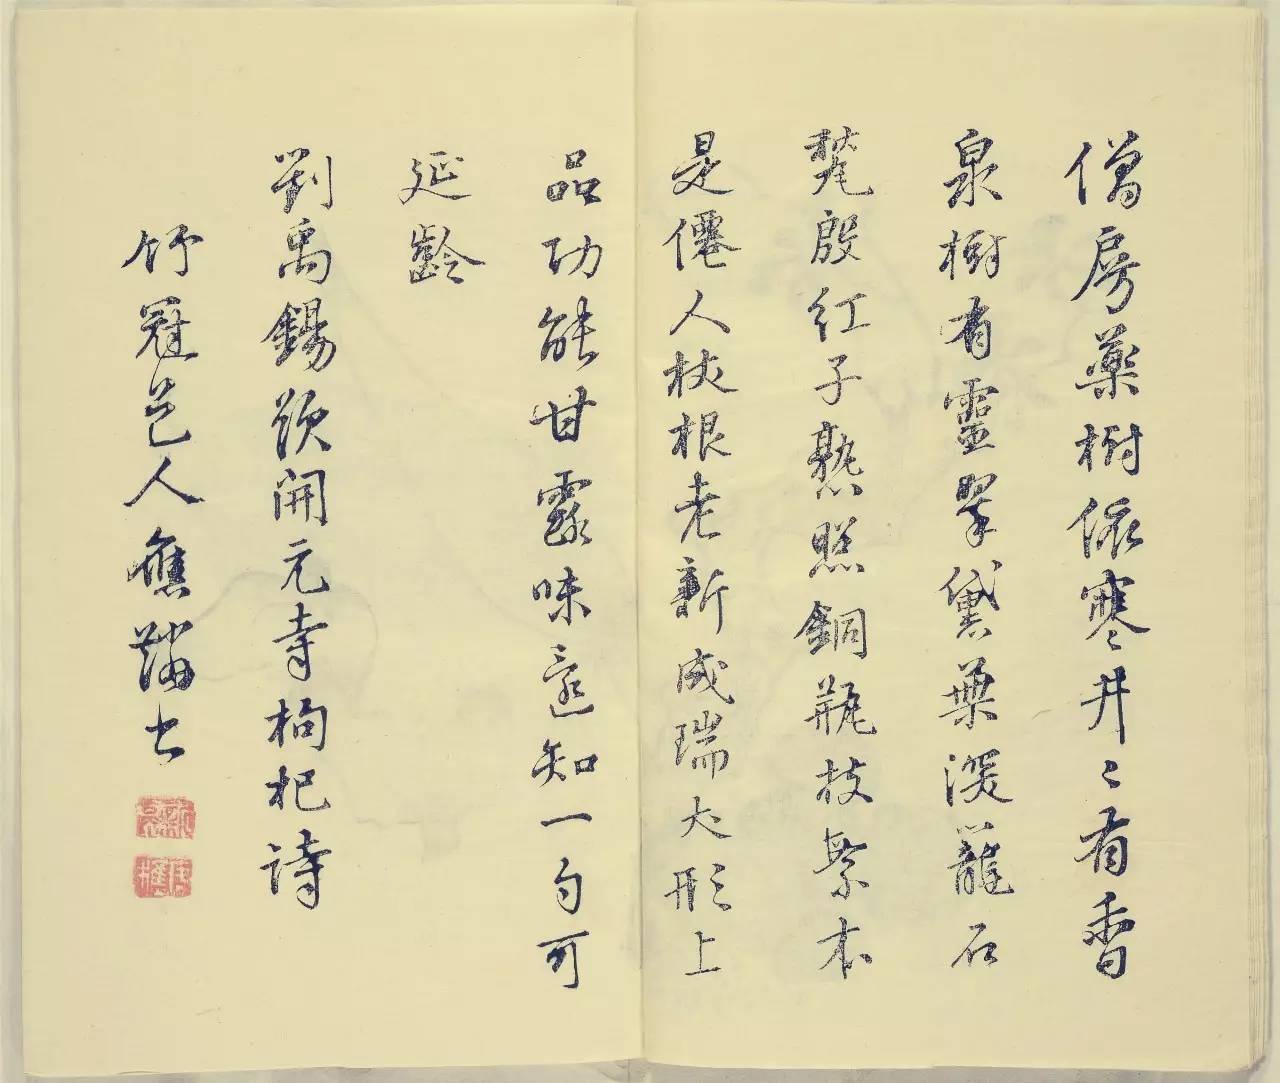 僧房藥樹依寒井〻有香
泉樹有靈翠黛葉深籠石
甃殷紅子熟照銅瓶枝繁本
是僊人杖根老新成瑞犬形上
品功能甘露味還知一勺可
延齡
劉禹錫開元寺枸杞詩
竹冠邑人書